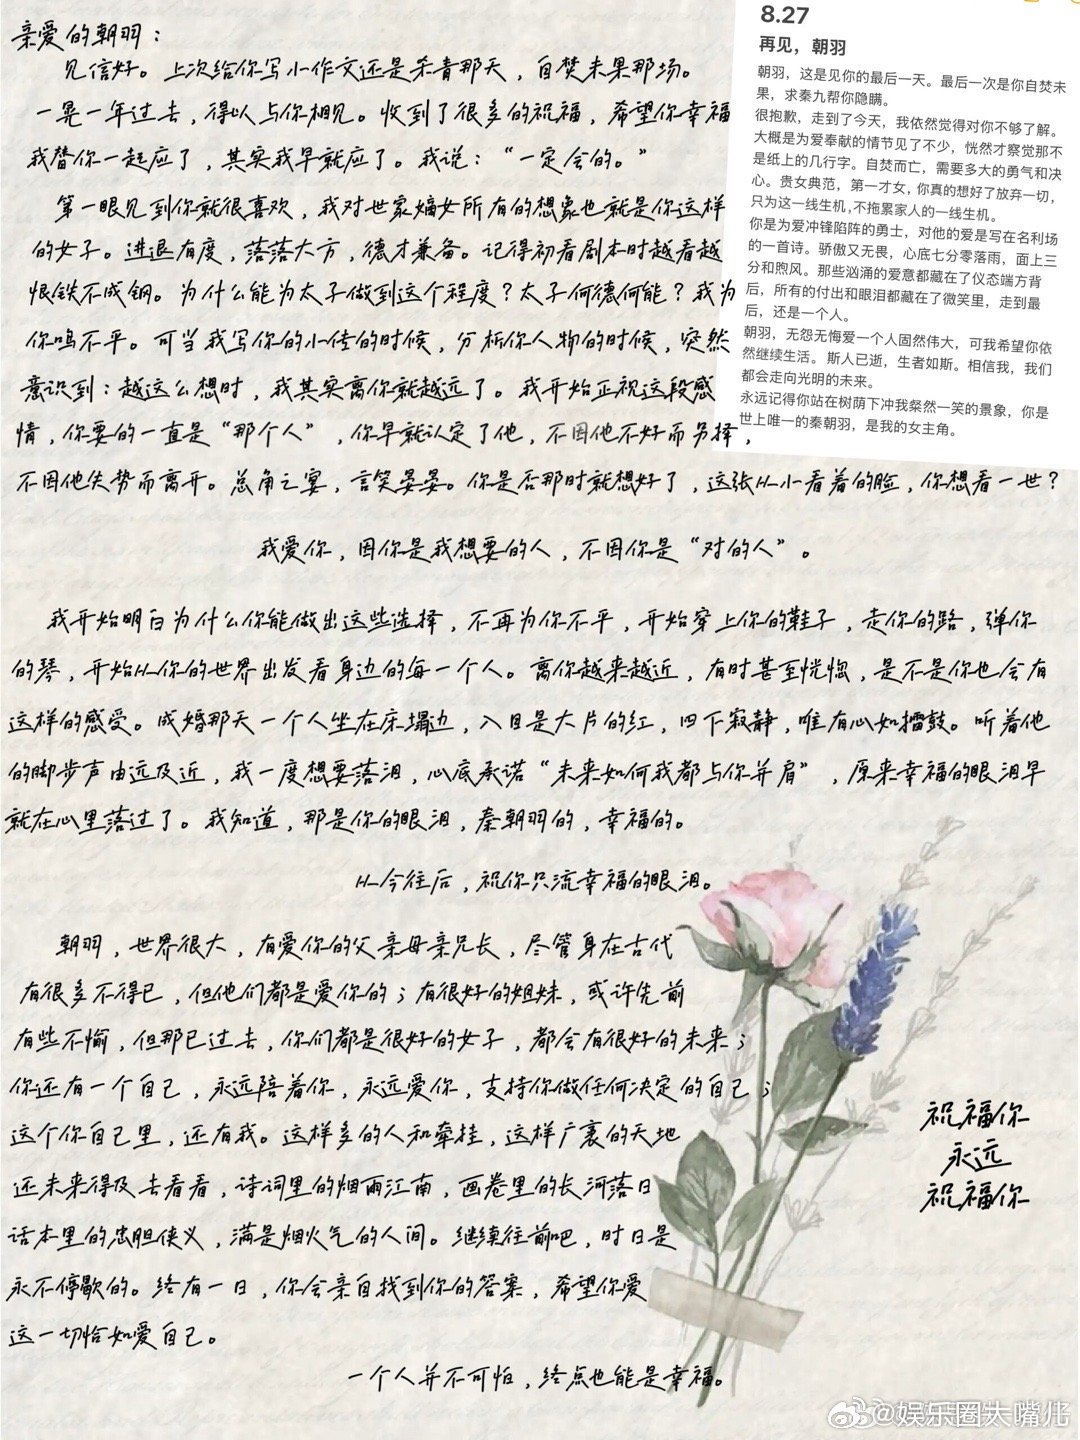 亲爱的朝羽：
见信好。上次给你写小作文还是杀青那天，自焚未果那场。
一晃一年过去，得以与你相见。收到了很多的祝福，希望你幸福
我替你一起应了，其实我早就应了。我说：“一定会的。”
第一眼见到你就很喜欢，我对世家嫡女所有的想象也就是你这样
的女子。进退有度，落落大方，德才兼备。记得初看剧本时越看越
恨铁不成钢。为什么能为太子做到这个程度？太子何德何能？我为
你鸣不平。可当我写你的小传的时候，分析你人物的时候，突然
意识到：越这么想时，我其实离你就越远了。我开始正视这段感
情，你要的一直是“那个人”，你早就认定了他，不因他不好而另择，
不因他失势而离开。总角之宴，言笑晏晏。你是否那时就想好了，这张从小看着的脸，你想看一世？
我爱你，因你是我想要的人，不因你是“对的人”。
我开始明白为什么你能做出这些选择，不再为你不平，开始穿上你的鞋子，走你的路，弹你
的琴，开始从你的世界出发看身边的每一个人。离你越来越近，有时甚至恍惚，是不是你也会有
这样的感受。成婚那天一个人坐在床塌边，入目是大片的红，四下寂静，唯有心如擂鼓。听着他
的脚步声由远及近，我一度想要落泪，心底承诺“未来如何我都与你并肩”，原来幸福的眼泪早
就在心里落过了。我知道，那是你的眼泪，秦朝羽的，幸福的。
从今往后，祝你只流幸福的眼泪。
朝羽，世界很大，有爱你的父亲母亲兄长，尽管身在古代
有很多不得已，但他们都是爱你的；有很好的姐妹，或许先前
有些不愉，但那已过去，你们都是很好的女子，都会有很好的未来；
你还有一个自己，永远陪着你，永远爱你，支持你做任何决定的自己；
这个你自己里，还有我。这样多的人和牵挂，这样广袤的天地
还未来得及去看看，诗词里的烟雨江南，画卷里的长河落日
话本里的忠胆侠义，满是烟火气的人间。继续往前吧，时日是
永不停歇的。终有一日，你会亲自找到你的答案，希望你爱
这一切恰如爱自己。
一个人并不可怕，终点也能是幸福。
祝福你
永远
祝福你
8.27
再见，朝羽
朝羽，这是见你的最后一天。最后一次是你自焚未
果，求秦九帮你隐瞒。
很抱歉，走到了今天，我依然觉得对你不够了解。
大概是为爱奉献的情节见了不少，恍然才察觉那不
是纸上的几行字。自焚而亡，需要多大的勇气和决
心。贵女典范，第一才女，你真的想好了放弃一切，
只为这一线生机,不拖累家人的一线生机。
你是为爱冲锋陷阵的勇士，对他的爱是写在名利场
的一首诗。骄傲又无畏，心底七分零落雨，面上三
分和煦风。那些汹涌的爱意都藏在了仪态端方背
后，所有的付出和眼泪都藏在了微笑里，走到最
后，还是一个人。
朝羽，无怨无悔爱一个人固然伟大，可我希望你依
然继续生活。斯人已逝，生者如斯。相信我，我们
都会走向光明的未来。
永远记得你站在树荫下冲我粲然一笑的景象，你是
世上唯一的秦朝羽，是我的女主角。
@娱乐圈大嘴儿